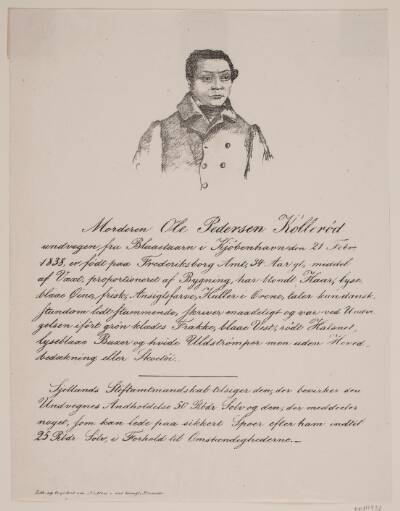 Morderen Ole Pedersen Kölleröd
undvegen fra Blaataarn i Kjöbenhavn den 21 Febr
1838, er född paa Frederiksborg Amt, 34 Aar gl, middel
af Væxt, proportioneret af Bygning, har blondt Haar, lyse
blaae Öine, frisk Ansigtsfarve, Huller i Örene, taler kun dansk,
stundom lidt stammende, skriver maadeligt og var ved Undvi-
gelsen ifört grön klædes Frakke, blaae Vest, rödt Halsnet,
lyseblaae Buxer og hvide Uldströmper men uden Hoved-
bedækning eller Skotöi.
Sjellands Stiftamtmandskab tilsiger den, der bevirker den
Undvegnes Anholdelse 50 Rbdr Sölv og den, der meddeeler
noget, som kan lede paa sikkert Spoer efter ham indtil
25 Rbdr Sölv, i Forhold til Omstændighederne.—